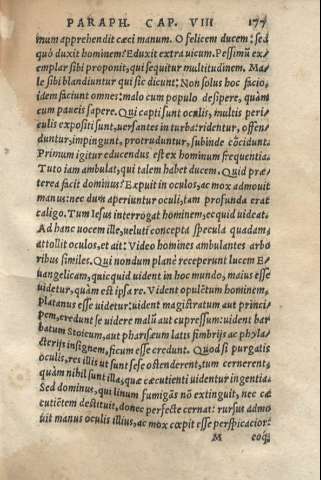 PARAPH. CAP. VIII 177
num apprehendit cæci manum. O felicem ducem: sed
quò duxit hominem? Eduxit extra uicum. Pessimũ ex-
emplar sibi proponit, qui sequitur multitudinem. Ma-
le sibi blandiuntur qui sic dicunt: Non solus hoc facio,
idem faciunt omnes: malo cum populo desipere, quàm
cum paucis sapere. Qui capti sunt oculis, multis peri-
culis expositi sunt, uersantes in turba: ridentur, offen-
duntur, impingunt, protruduntur, subinde cõcidunt.
Primum igitur educendus est ex hominum frequentia.
Tuto iam ambulat, qui talem habet ducem. Quid præ
terea facit dominus? Expuit in oculos, ac mox admouit
manus: nec dum aperiuntur oculi, tam profunda erat
caligo. Tum Iesus interrogat hominem, ecquid uideat.
Ad hanc uocem ille, ueluti concepta specula quadam,
attollit oculos, et ait: Video homines ambulantes arbo
ribus similes. Qui nondum planè receperunt lucem E-
uangelicam, quicquid uident in hoc mundo, maius esse
uidetur, quàm est ipsa re. Vident opulẽtum hominem,
platanus esse uidetur: uident magistratum aut princi-
pem, credunt se uidere malũ aut cupressum: uident bar
batum Stoicum, aut pharisæum latis fimbrijs ac phyla-
cterijs insignem, ficum esse credunt. Quod si purgatis
oculis, res illis ut sunt sese ostenderent, tum cernerent,
quàm nihil sunt illa, quæ cæcutienti uidentur ingentia.
Sed dominus, qui linum fumigãs nõ extinguit, nec cæ
cutiẽtem destituit, donec perfecte cernat: rursus admo
uit manus oculis illius, ac mox cœpit esse perspicacior:
M eoq;